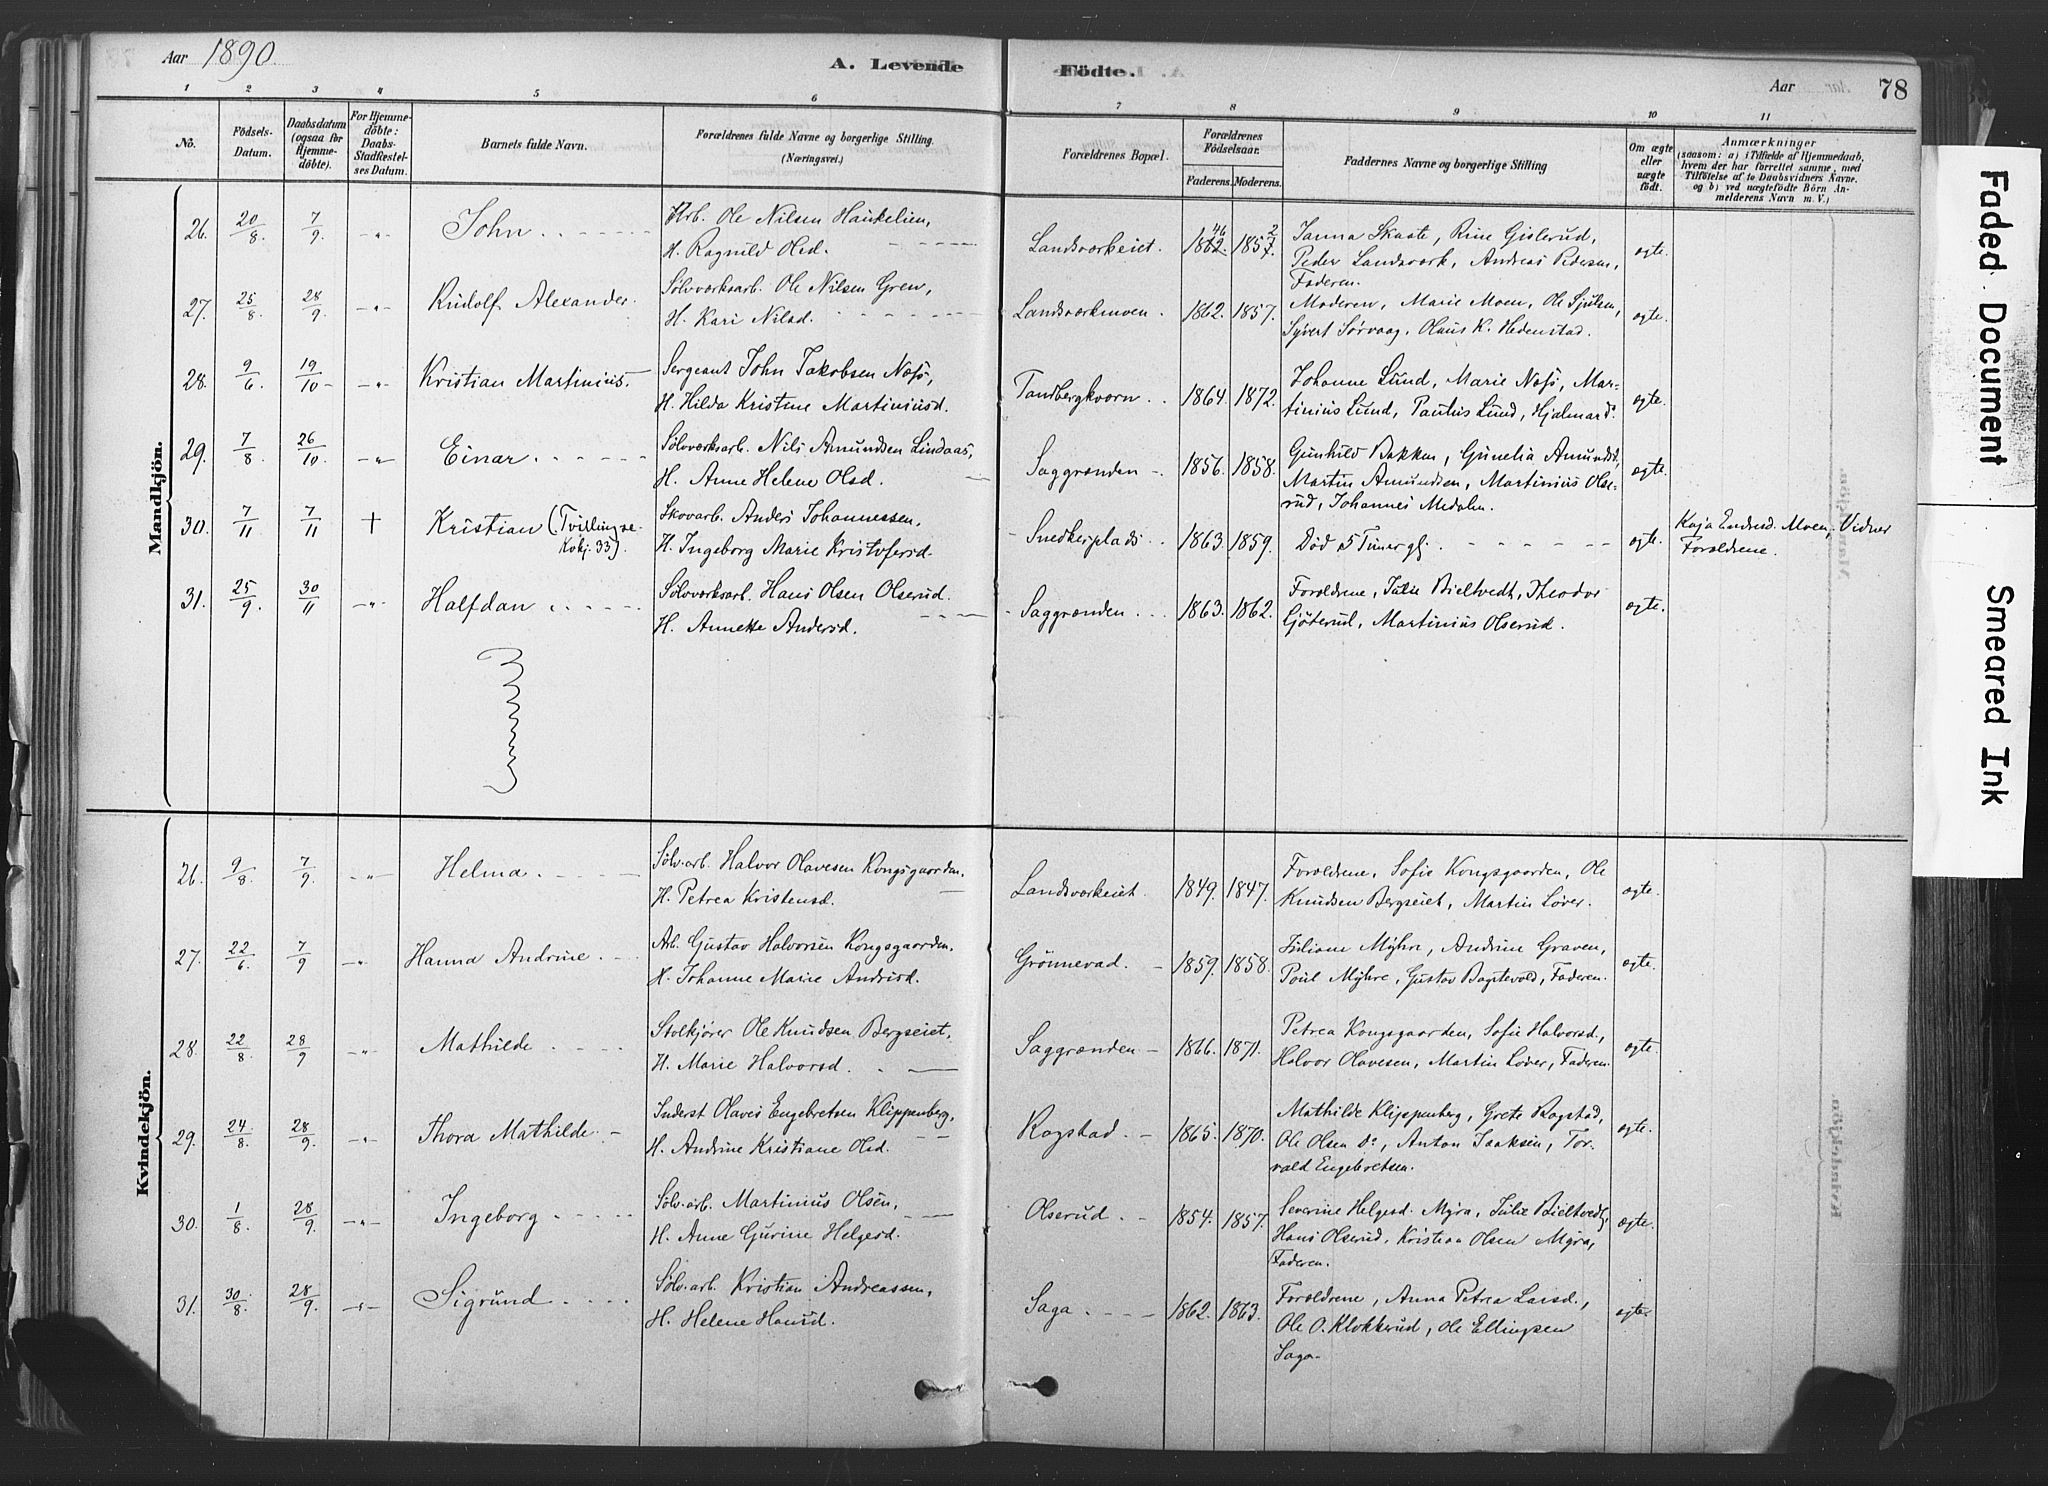 Aar 1890.
A. Levende Födte.
Aar 78
1 2 3 4 5 6 7 8 9 10 11
No.
Födsels-Datum.
Daabsdatum (ogsaa for Hjemmedöbte).
For Hjemmedöbte: Daabs-Stadfæstelses Datum.
Barnets fulde Navn.
Forældrenes fulde Navne og borgerlige Stilling. (Næringsvei.)
Forældrenes Bopæl.
Forældrenes Födselsaar.
Faderens. Moderens.
Faddernes Navne og borgerlige Stilling
Om ægte eller uægte födt.
Anmærkninger
(saasom: a) i Tilfælde af Hjemmedaab, hvem der har forrettet samme, med Tilföielse af to Daabsvidners Navne, og b) ved uægtefödte Börn Anmelderens Navn m. V.)
Mandkjön.
26. 20/8. 7/9. -"- John
Arb. Ole Nilsen Haukelien,
H. Ragnild Olsd.
Landsværkeiet. 1862. 46 1857. 2
Janna Skaate, Rine Gislerud,
Peder Landsværk, Andreas Pedersen,
Faderen.
ægte.
27. 25/8. 28/9. -"- Rudolf Alexander.
Sølvværksarb. Ole Nilsen Green,
H. Kari Nilsd.
Landsværkmoen. 1862. 1857.
Moderen, Marie Moen, Ole Sjulsen,
Syvert Sørvaag, Olaus K. Hedenstad.
ægte.
28. 9/6. 19/10 -"- Kristian Martinius.
Sergeant John Jakobsen Næss,
H. Hilda Kristine Martiniusd.
Tandbergkværn. 1864. 1872.
Johanne Lund, Marie Næss, Mar-
tinius Lund, Paulus Lund, Hjalmar do.
ægte.
29. 7/8. 26/10. -"- Einar
Sølvværksarb. Nils Amundsen Lindaas,
H. Anne Helene Olsd.
Saggrænden 1856. 1858.
Gunhild Bakken, Gunelia Amundsd,
Martin Amundsen, Martinius Olse-
rud, Johannes Medalen.
ægte.
30. 7/11 7/11 + Kristian (Tvilling se
Kvkj. 33).
Skovarb. Anders Johannessen,
H. Ingeborg Marie Kristofersd.
Snedkerplads. 1863. 1859.
Død 5 Timer gl.
ægte.
Kaja Endresd. Moen, Vidner
Forældrene.
31. 25/9. 30/11 -"- Halfdan
Sølvværksarb. Hans Olsen Olserud.
H. Annette Andersd.
Saggrænden 1863. 1862.
Forældrene, Julie Bieltvedt, Theodor
Gjøterud, Martinius Olserud.
ægte.
Kvindekjön.
26. 9/8. 7/9. -"- Helma
Sølv.arb. Halvor Olavesen Kongsgaarden.
H. Petrea Kristensd.
Landsværkeiet. 1849. 1847.
Forældrene, Sofie Kongsgaarden, Ole
Knudsen Bergseiet, Martin Løver.
ægte.
27. 22/6. 7/9 -"- Hanna Andrine.
Arb. Gustav Halvorsen Kongsgaarden.
H. Johanne Marie Andrisd.
Grönnevad. 1859. 1858.
Juliane Myhre, Andrine Graven,
Poul Myhre, Gustav Bagstevold, Faderen.
ægte.
28. 22/8. 28/9 -"- Mathilde
Stolkjører Ole Knudsen Bergseiet,
H. Marie Halvorsd.
Saggrænden 1866. 1871.
Petrea Kongsgaarden, Sofie Halvorsd.,
Halvor Olavesen, Martin Løver, Faderen.
ægte.
29. 24/8. 28/9. -"- Thora Mathilde.
Inderst Olaves Engebretsen Klippenberg,
H. Andrine Kristiane Olsd.
Rogstad. 1865. 1870.
Mathilde Klippenberg, Grete Rogstad,
Ole Olsen do, Anton Isaksen, Tor-
vald Engebretsen.
ægte.
30. 1/8. 28/9. -"- Ingeborg
Sølv.arb. Martinius Olsen,
H. Anne Gurine Helgesd.
Olserud. 1854. 1857.
Severine Helgesd. Myra, Julie Bieltvedt,
Hans Olserud, Kristian Olsen Myra,
Faderen.
ægte.
31. 30/8. 28/9. -"- Sigrund
Sølv.arb Kristian Andreassen,
H. Helene Hansd.
Saga. 1862. 1863.
Forældrene, Anna Petrea Larsd.,
Ole O. Klokkerud, Ole Ellingsen
Saga.
ægte.
Faded Document
Smeared Ink